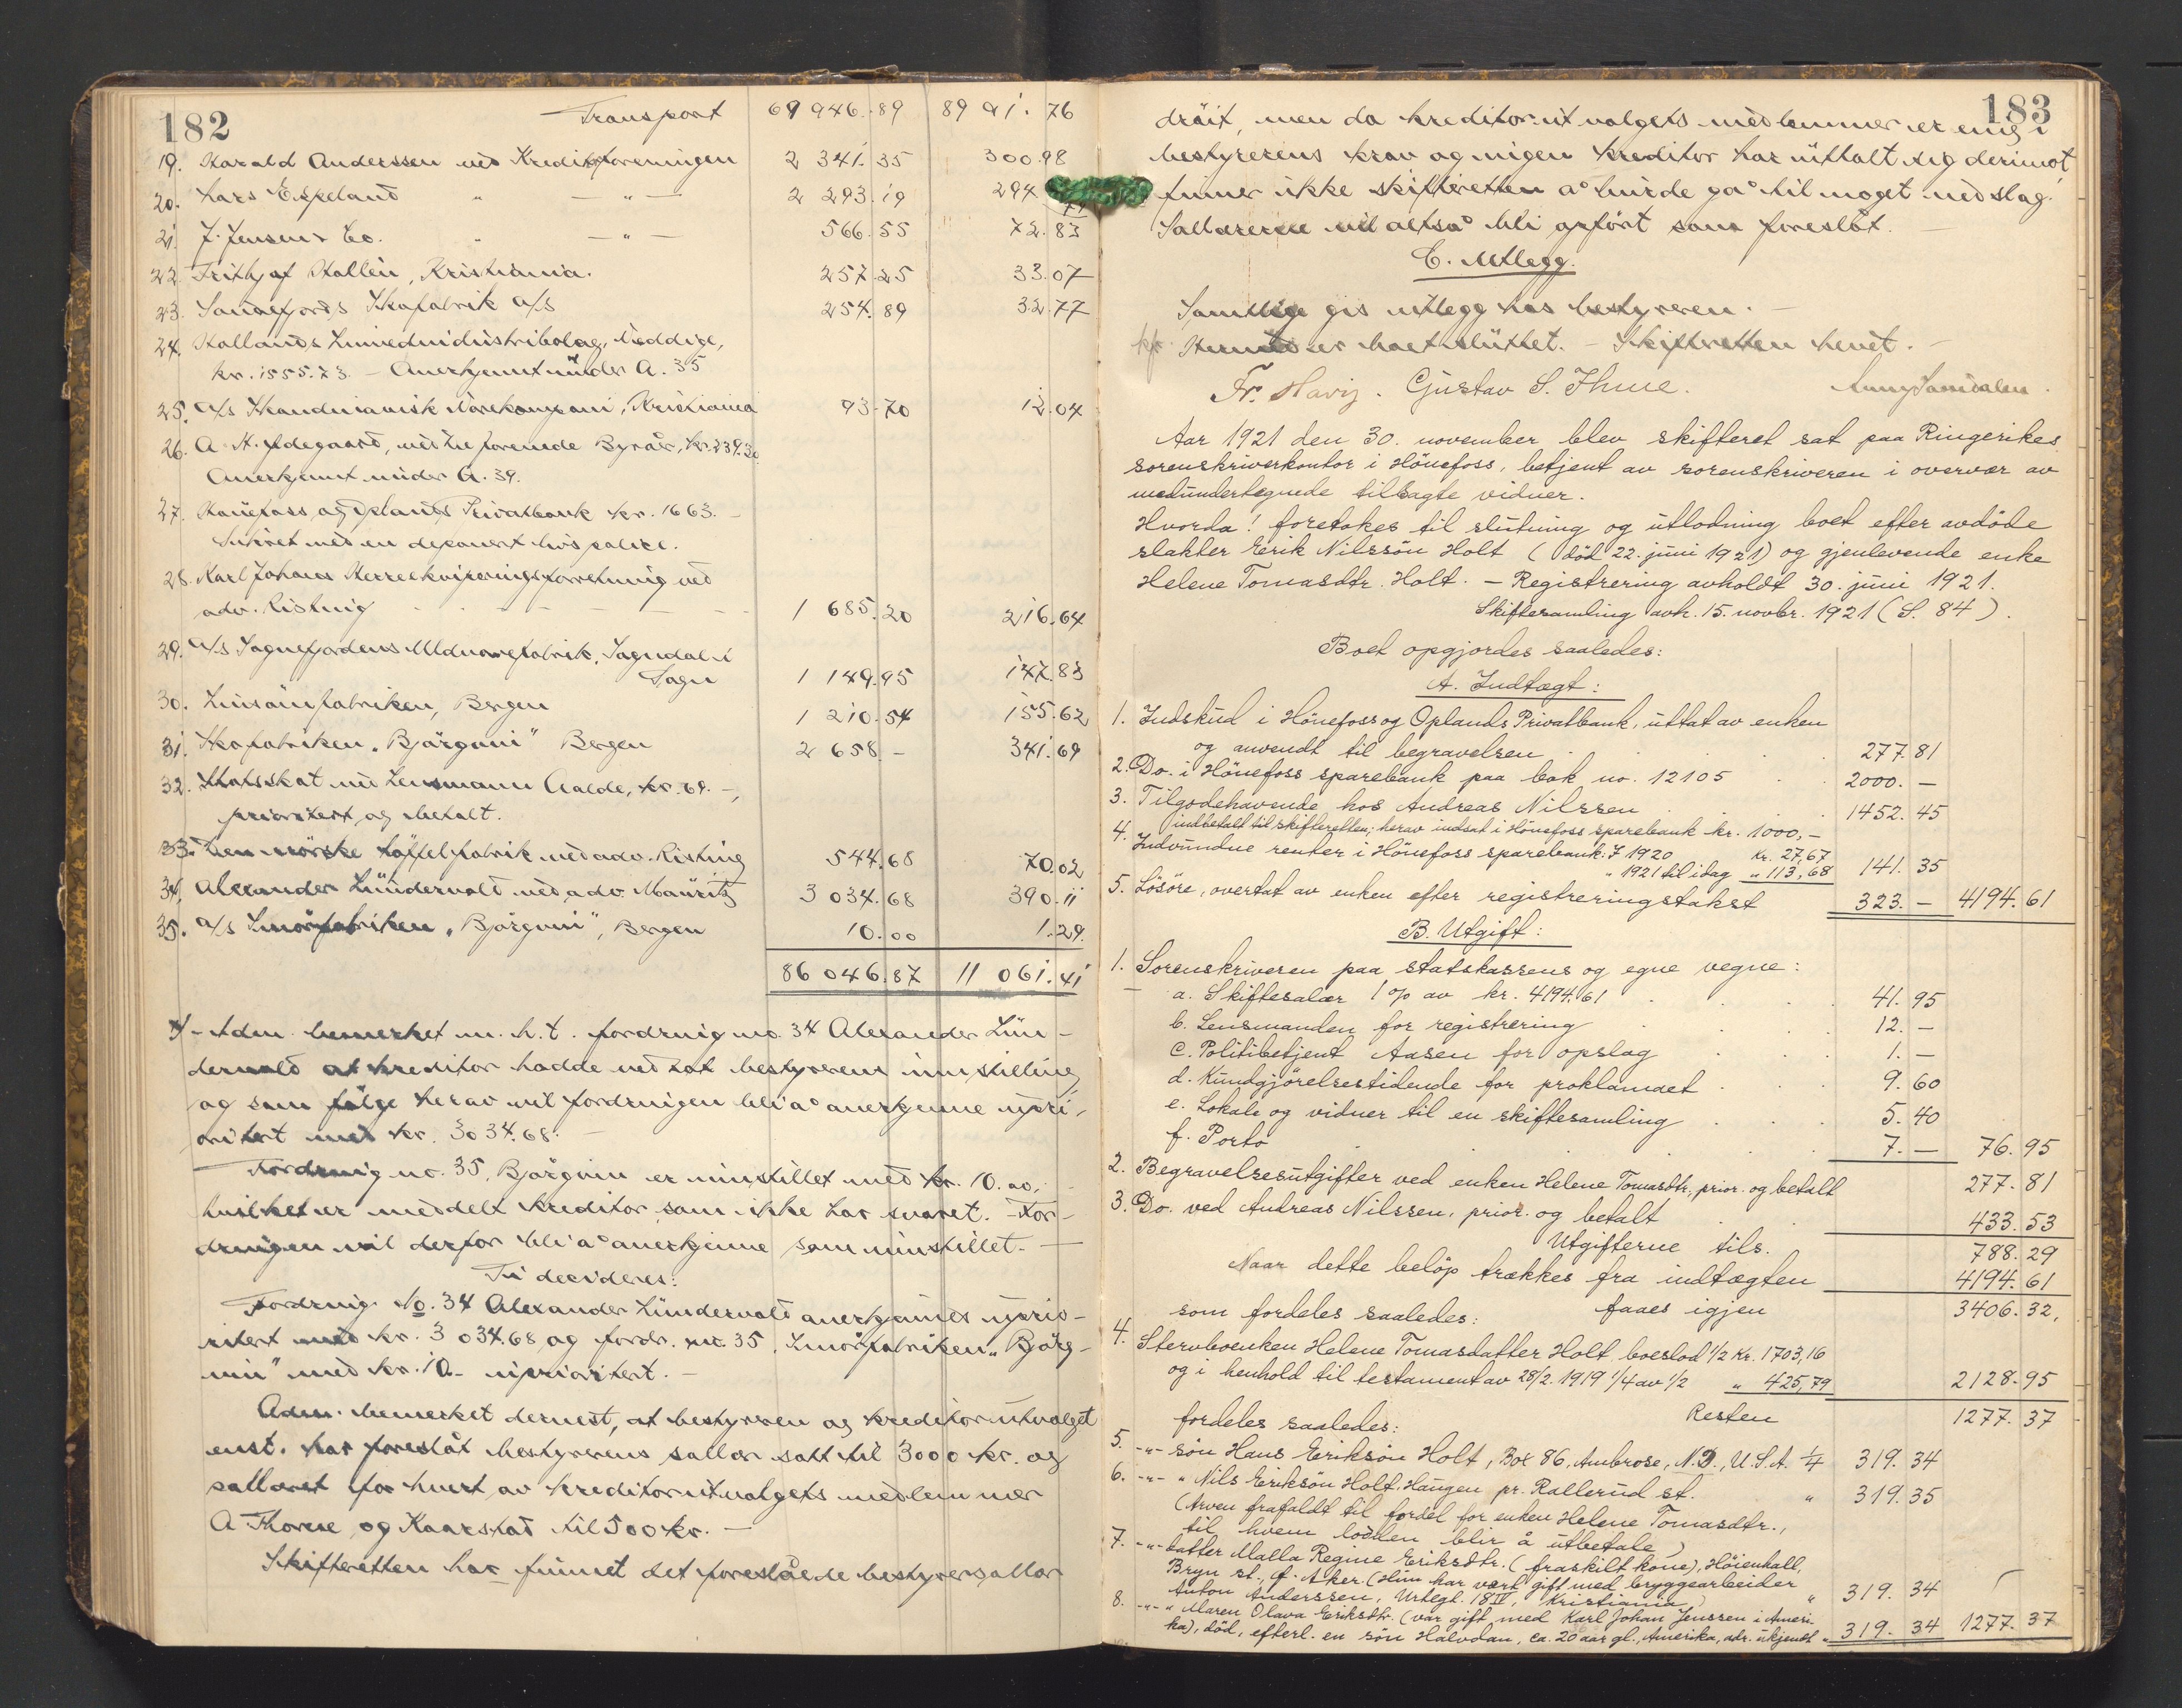 182
Transport 69 946.89 89 91.76
19. Harald Anderssen ved Kreditforeningen 2 341.35 300.98
20. Lars Espeland " — " — 2 293.19 294
21. J. Jensen & Co. " — " — 566.55 72.83
22. Frithjof Hallin, Kristiania. 257.25 33.07
23. Sandefjords Skofabrik A/S 254.89 32.77
24. Hallands Linnedindustribolag, Veddige,
kr. 1555.73. — Anerkjent under A. 35
25. A/S Skandinavisk Varekompani, Kristiania 93.70 12.04
26. A. H. Ødegaard, ved De forenede Byråer, kr. 239.30
Anerkjent under A. 39.
27. Hønefoss og Oplands Privatbank kr. 1663. —
Sikret med en deponert livspolice.
28. Karl Johans Herreekviperingsforretning ved
adv. Risting 1 685.20 216.64
29. A/S Sognefjordens Uldvarefabrik, Sogndal i
Sogn 1 149.95 147.83
30. Linsømfabriken, Bergen 1 210.54 155.62
31. Skofabriken "Bjørgvin" Bergen 2 658 – 341.69
32. Statsskat ved Lensmann Aalde, kr. 69. –,
prioritert og betalt.
33. Den norske tøffelfabrik ved adv. Risting 544.68 70.02
34. Alexander Lundervold ved adv. Mauritz 3 034.68 390.11
35. A/S Smørfabriken "Bjørgvin", Bergen 10.00 1.29.
86 046.87 11 061.41
– Adm. bemerket m. h. t. fordring no. 34 Alexander Lun-
dervold at kreditor hadde vedtat bestyrerens innstilling,
og som følge herav vil fordringen bli å anerkjenne upri-
oritert med kr. 3034.68. –
Fordring no. 35, Bjørgvin er innstillet med kr. 10.00,
hvilket er meddelt kreditor som ikke har svaret. – For-
dringen vil derfor bli å anerkjenne som innstillet. —
Ti decideres:
Fordring No. 34 Alexander Lundervold anerkjennes uprio-
ritert med kr. 3 034.68 og fordr. no. 35, Smørfabriken "Bjørg-
vin" med kr. 10.– uprioritert. –
Adm. bemerket dernest, at bestyreren og kreditorutvalget
enst. har foreslåt bestyrerens sallær satt til 3000 kr. og
sallæret for hvert av kreditorutvalgets medlemmer
A Thorese og Kaarstad til 500 kr. —
Skifteretten har funnet det foreslåede bestyrersallær
183
drøit, men da kreditorutvalgets medlemmer er enig i
bestyrerens krav og ingen kreditor har uttalt sig derimot,
finner ikke skifteretten å burde gå til noget nedslag.
Sallærerne vil altså bli opført som foreslåt. —
C. Utlegg.
Samtlige gis utlegg hos bestyreren. —
Hermed er boet sluttet. – Skifteretten hevet. –
Fr. Gustav S. Thue.
Aar 1921 den 30. november blev skifteret sat paa Ringerikes
sorenskriverkontor i Hönefoss, betjent av sorenskriveren i overvær av
medundertegnede tilsagte vidner.
Hvorda! foretokes til slutning og utlodning boet efter avdöde
slakter Erik Nilssön Holt (död 22. juni 1921) og gjenlevende enke
Helene Tomasdtr. Holt. – Registrering avholdt 30. juni 1921.
Skiftesamling avh. 15. novbr. 1921 (S. 84).
Boet opgjordes saaledes:
A. Indtægt:
1. Indskud i Hönefoss og Oplands Privatbank, uttat av enken
og anvendt til begravelsen 277.81
2. Do. i Hönefoss sparebank paa bok no. 12105 2000. –
3. Tilgodehavende hos Andreas Nilssen 1452.45
indbetalt til skifteretten; herav indsat i Hönefoss sparebank kr. 1000,–
4. Indvundne renter i Hönefoss sparebank: I 1920 Kr. 27,67
" 1921 til idag " 113,68 141.35
5. Lösöre, overtat av enken efter registreringstakst 323. – 4194.61
B. Utgift:
1. Sorenskriveren paa statskassens og egne vegne:
a. Skiftesalær 1 % av kr. 4194.61 41.95
b. Lensmanden for registrering 12. –
c. Politibetjent Aasen for opslag 1. –
d. Kundgjörelsestidende for proklamaet 9.60
e. Lokale og vidner til en skiftesamling 5.40
f. Porto 7. – 76.95
2. Begravelsesutgifter ved enken Helene Tomasdtr., prior. og betalt 277.81
3. Do. ved Andreas Nilssen, prior. og betalt 433.53
Utgifterne tils. 788.29
Naar dette belöp trækkes fra indtægten 4194.61
faaes igjen 3406.32,
som fordeles saaledes:
4. Stervboenken Helene Tomasdatter Holt boeslod 1/2 Kr. 1703,16
og i henhold til testament av 28/2. 1919 1/4 av 1/2 " 425,79 2128.95
Resten 1277.37
fordeles saaledes:
5. -"- sön Hans Eriksön Holt, Box 86, Ambrose, N.D., U.S.A. 1/4 319.34
6. -"- " Nils Eriksön Holt, Haugen pr. Rallerud st. " 319.35
(Arven frafaldt til fordel for enken Helene Tomasdtr.,
til hvem lodden blir å utbetale)
7. -"- datter Malla Regine Eriksdtr. (fraskilt kone), Höienhall,
Bryn st., Ö. Aker. (Hun har vært gift med bryggearbeider
Anton Anderssen, Urtegt. 18 IV, Kristiania) " 319.34
8. -"- " Maren Olava Eriksdtr. (var gift med Karl Johan Jenssen i Ameri-
ka), död, efterl. en sön Halvdan, ca. 20 aar gl., Amerika, adr. ukjendt " 319.34 1277.37